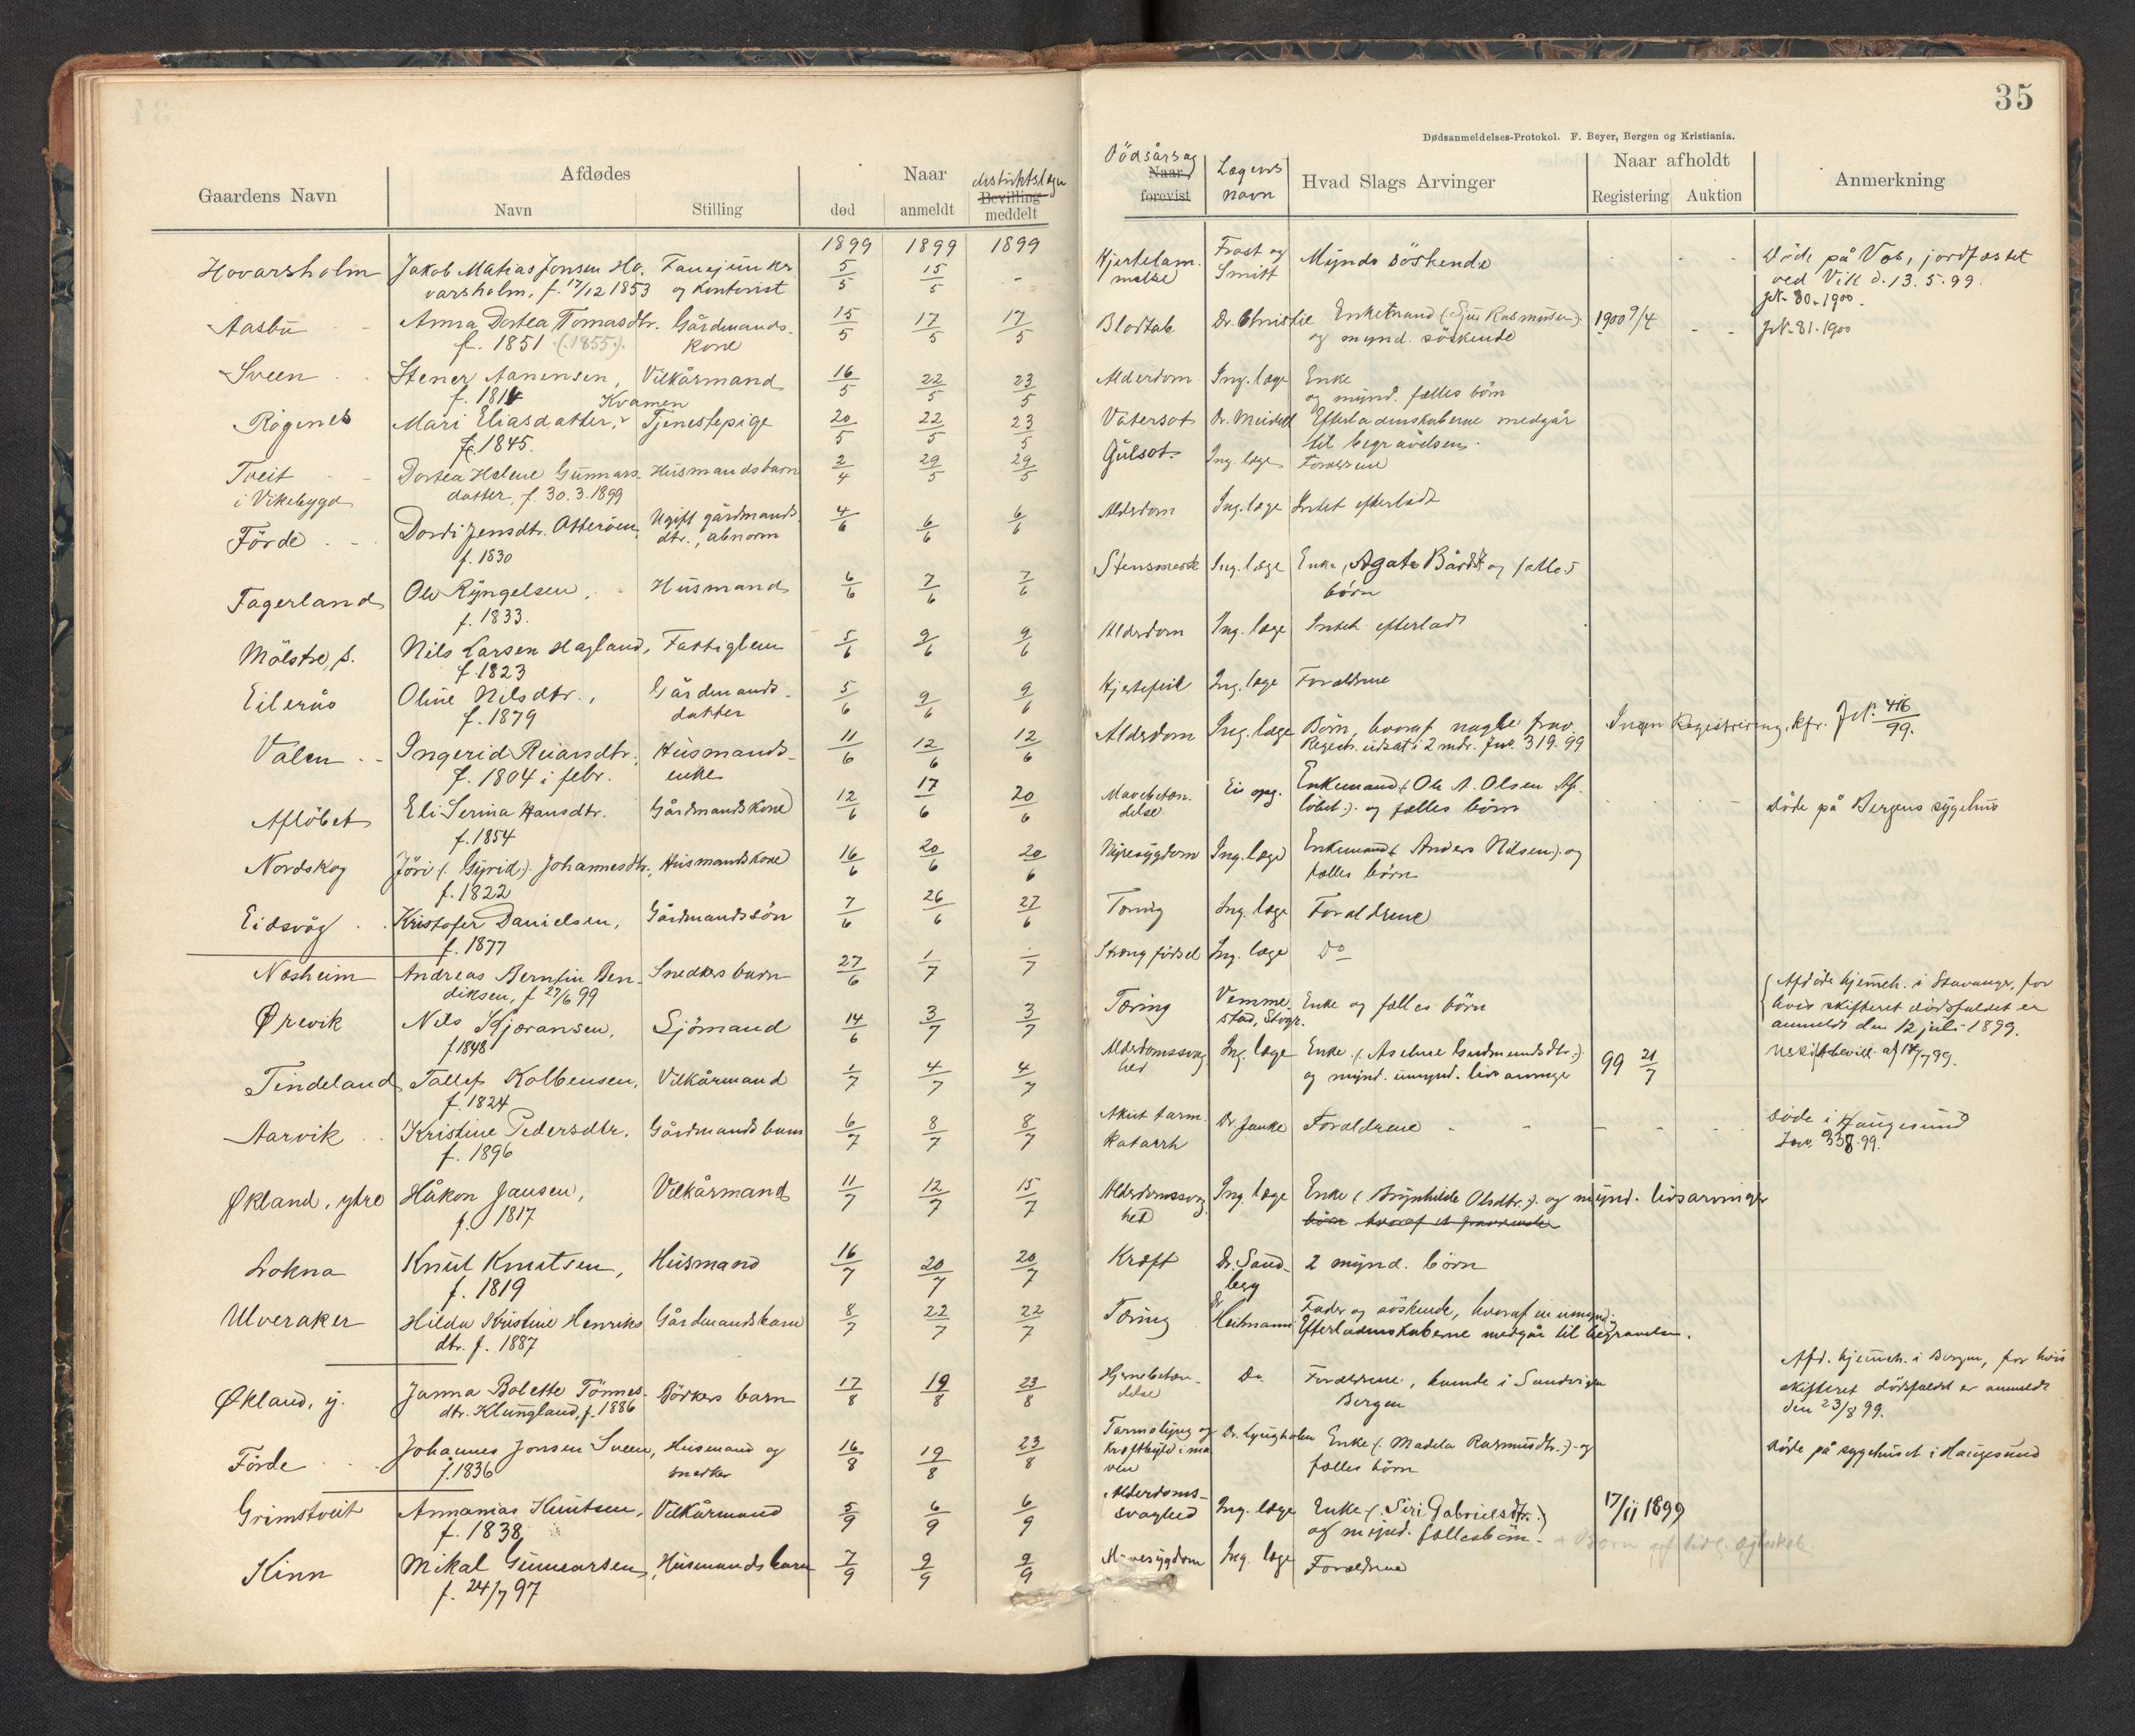 35
Dødsanmeldelses-Protokol. F. Beyer, Bergen og Kristiania.
Gaardens Navn
Afdødes
Navn
Stilling
Naar
død
anmeldt
Bevilling
meddelt
Dödsårsag
Naar
forevist
Lægens
navn
Hvad Slags Arvinger
Naar afholdt
Registering
Auktion
Anmerkning
1899 1899 1899
Hovarsholm Jakob Matias Jonsen Ho- Fanejunker 5/5 15/5 - Hjertelam- Frost og Mynd. söskende Döde på Vos, jordfæstet
varsholm, f. 17/12 1853 og Kontorist melse Smitt ved Vik d. 13.5.99.
JN. 80-1900.
Aasbu Anna Dortea Tomasdtr. Gårdmands- 15/5 17/5 17/5 Blodtab Dr. Christie Enkemand (: Sjur Rasmusen :) 1900 9/4 JN. 81-1900
f. 1851 (1855) kone og mynd. söskende
Sveen Stener Aanensen, Vilkårmand 16/5 22/5 23/5 Alderdom Ing. læge Enke
f. 181 og mynd. fælles börn
Kvamen
Rögenes Mari Eliasdatter, Tjenestepige 20/5 22/5 23/5 Vatersot Dr. Meidell Efterladenskaberne medgår
f. 1845. til begravelsen.
Tveit Dortea Helene Gunnars- Husmandsbarn 2/4 29/5 29/5 Gulsot Ing. læge Forældrene
i Vikebygd datter f. 30.3.1899
Förde Dordi Jensdtr. Otteröen, Ugift gårdmands- 4/6 6/6 6/6 Alderdom Ing. læge Intet efterladt
f. 1830 dtr., abnorm
Fagerland Ole Ryngelsen, Husmand 6/6 7/6 7/6 Stensmerte Ing. læge Enke, Agate Bårdsd. og fælles
f. 1833. börn
Mölstre, s. Nils Larsen Hagland, Fattiglem 5/6 9/6 9/6 Alderdom Ing. læge Intet efterladt
f. 1823
Eilerås Oline Nilsdtr., Gårdmands- 5/6 9/6 9/6 Hjertefeil Ing. læge Forældrene
f. 1879 datter
Valen Ingerid Reiarsdtr. Husmands- 11/6 12/6 12/6 Alderdom Ing. læge Börn, hvoraf nogle frav. Ingen Registrering, kfr. JN. 416/99.
f. 1804 i febr. enke Registr. udsat i 2 mdr. Jno. 319.99
Aflöbet Eli Serina Hansdtr. Gårdmandskone 12/6 17/6 20/6 Mavebetæn- Ei opg. Enkemand (: Ole A. Olsen Af- Döde på Bergens sygehus
f. 1854 delse löbet :) og fælles börn
Nordskog Jöri (: Gyrid :) Johannesdtr., Husmandskone 16/6 20/6 20/6 Nyresygdom Ing. læge Enkemand (: Anders Nilsen :) og
f. 1822 fælles börn
Eidsvåg Kristofer Danielsen, Gårdmandssön 7/6 26/6 27/6 Tæring Ing. læge Forældrene
f. 1877
Næsheim Andreas Berntin Ben- Snedkers barn 27/6 1/7 -/7 Streng födsel Ing. læge Do
diksen, f. 27/6 99
Ørevik Nils Kjöransen, Sjömand 14/6 3/7 3/7 Tæring Vemme- Enke og fælles börn Afdöde hjemmeh. i Stavanger, for
f 1848 stad, Stvgr. hvis skifteret dödsfaldet er
anmeldt den 12 juli 1899.
Tindeland Tollef Kolbensen, Vilkårmand 1/7 4/7 4/7 Alderdomssvag- Ing. læge Enke (: Aselene Gudmundsdtr. :) 99 21/7 Uskiftebevill. af 14/7 99.
f. 1824 hed og mynd. umynd. livsarvinger
Aarvik Kristine Pedersdtr. Gårdmandsbarn 6/7 8/7 8/7 Akut tarm- Dr. Janke Forældrene Döde i Haugesund
f. 1896 katarrh Jno. 338.99.
Økland, ytre Håkon Jansen, Vilkårmand 11/7 12/7 15/7 Alderdomssvag- Ing. læge Enke (: Brynhilde Olsdtr. :) og mynd. livsarvinger
f. 1817 hed
Lokna Knut Knutsen, Husmand 16/7 20/7 20/7 Kræft Dr. Sand- 2 mynd. börn
f. 1819 berg
Ulveraker Hilda Kristine Henriks Gårdmandsbarn 8/7 22/7 22/7 Tæring Dr Heitmann Fader og söskende, hvoraf en umynd.
dtr. f. 1887 Efterladenskaberne medgår til begravelsen.
Økland, y. Janna Bolette Tönnes- Bödkers barn 17/8 19/8 23/8 Hjernebetæn- Do Forældrene, boende i Sandviken Afd. hjemmeh. i Bergen, for hvis
dtr. Klungland, f. 1886 delse Bergen skifteret dödsfaldet er anmeldt
den 23/8 99.
Förde Johannes Jonsen Sveen, Husmand og 16/8 19/8 23/8 Tarmslyng og Dr. Lyngholm Enke (: Madela Rasmusdtr. :) og Döde på sygehuset i Haugesund
f. 1836 snedker kræftbyld i ma- fælles börn
ven
Grimstveit Annanias Knutsen, Vilkårmand 5/9 6/9 6/9 Alderdoms- Ing. læge Enke (: Siri Gabrielsdtr. :) 17/11 1899
f. 1838 svaghed og mynd. fællesbörn.
Kinn Mikal Gunnarsen, Husmandsbarn 7/9 9/9 9/9 Mavesygdom Ing. læge Forældrene
f. 24/7 97